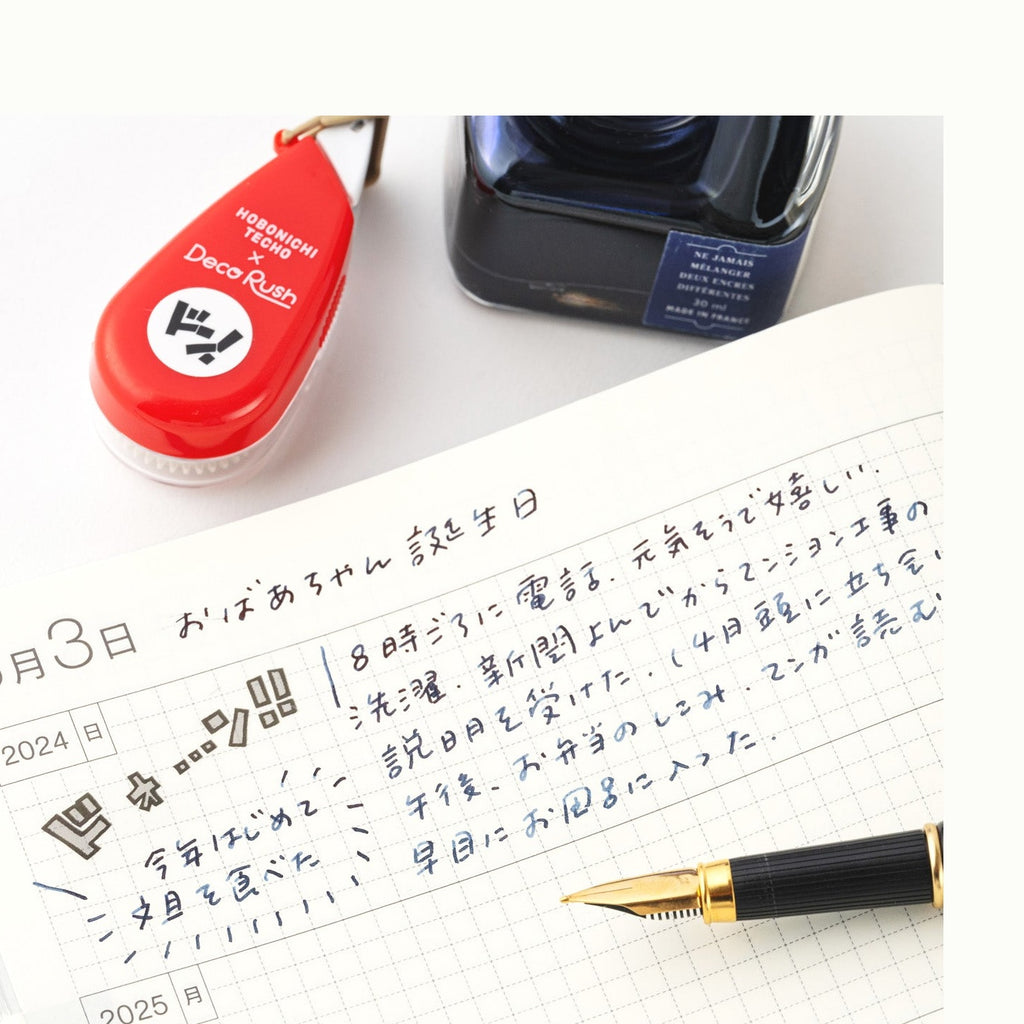 HOBONICHI
TECHO
×
Deco Rush
ドン!
NE JAMAIS
MÉLANGER
DEUX ENCRES
DIFFÉRENTES
30 ml
MADE IN FRANCE
月3日
おばあちゃん誕生日
2024 日
ド
ン!!
今年はじめて
文旦を食べた
8時ごろに電話.元気そうで嬉しい.
洗濯.新聞よんでからマンション工事の
説明を受けた.(4月頭に立ち会い
午後、お弁当のしこみ.マンガ読む
早目にお風呂に入った.
2025 月